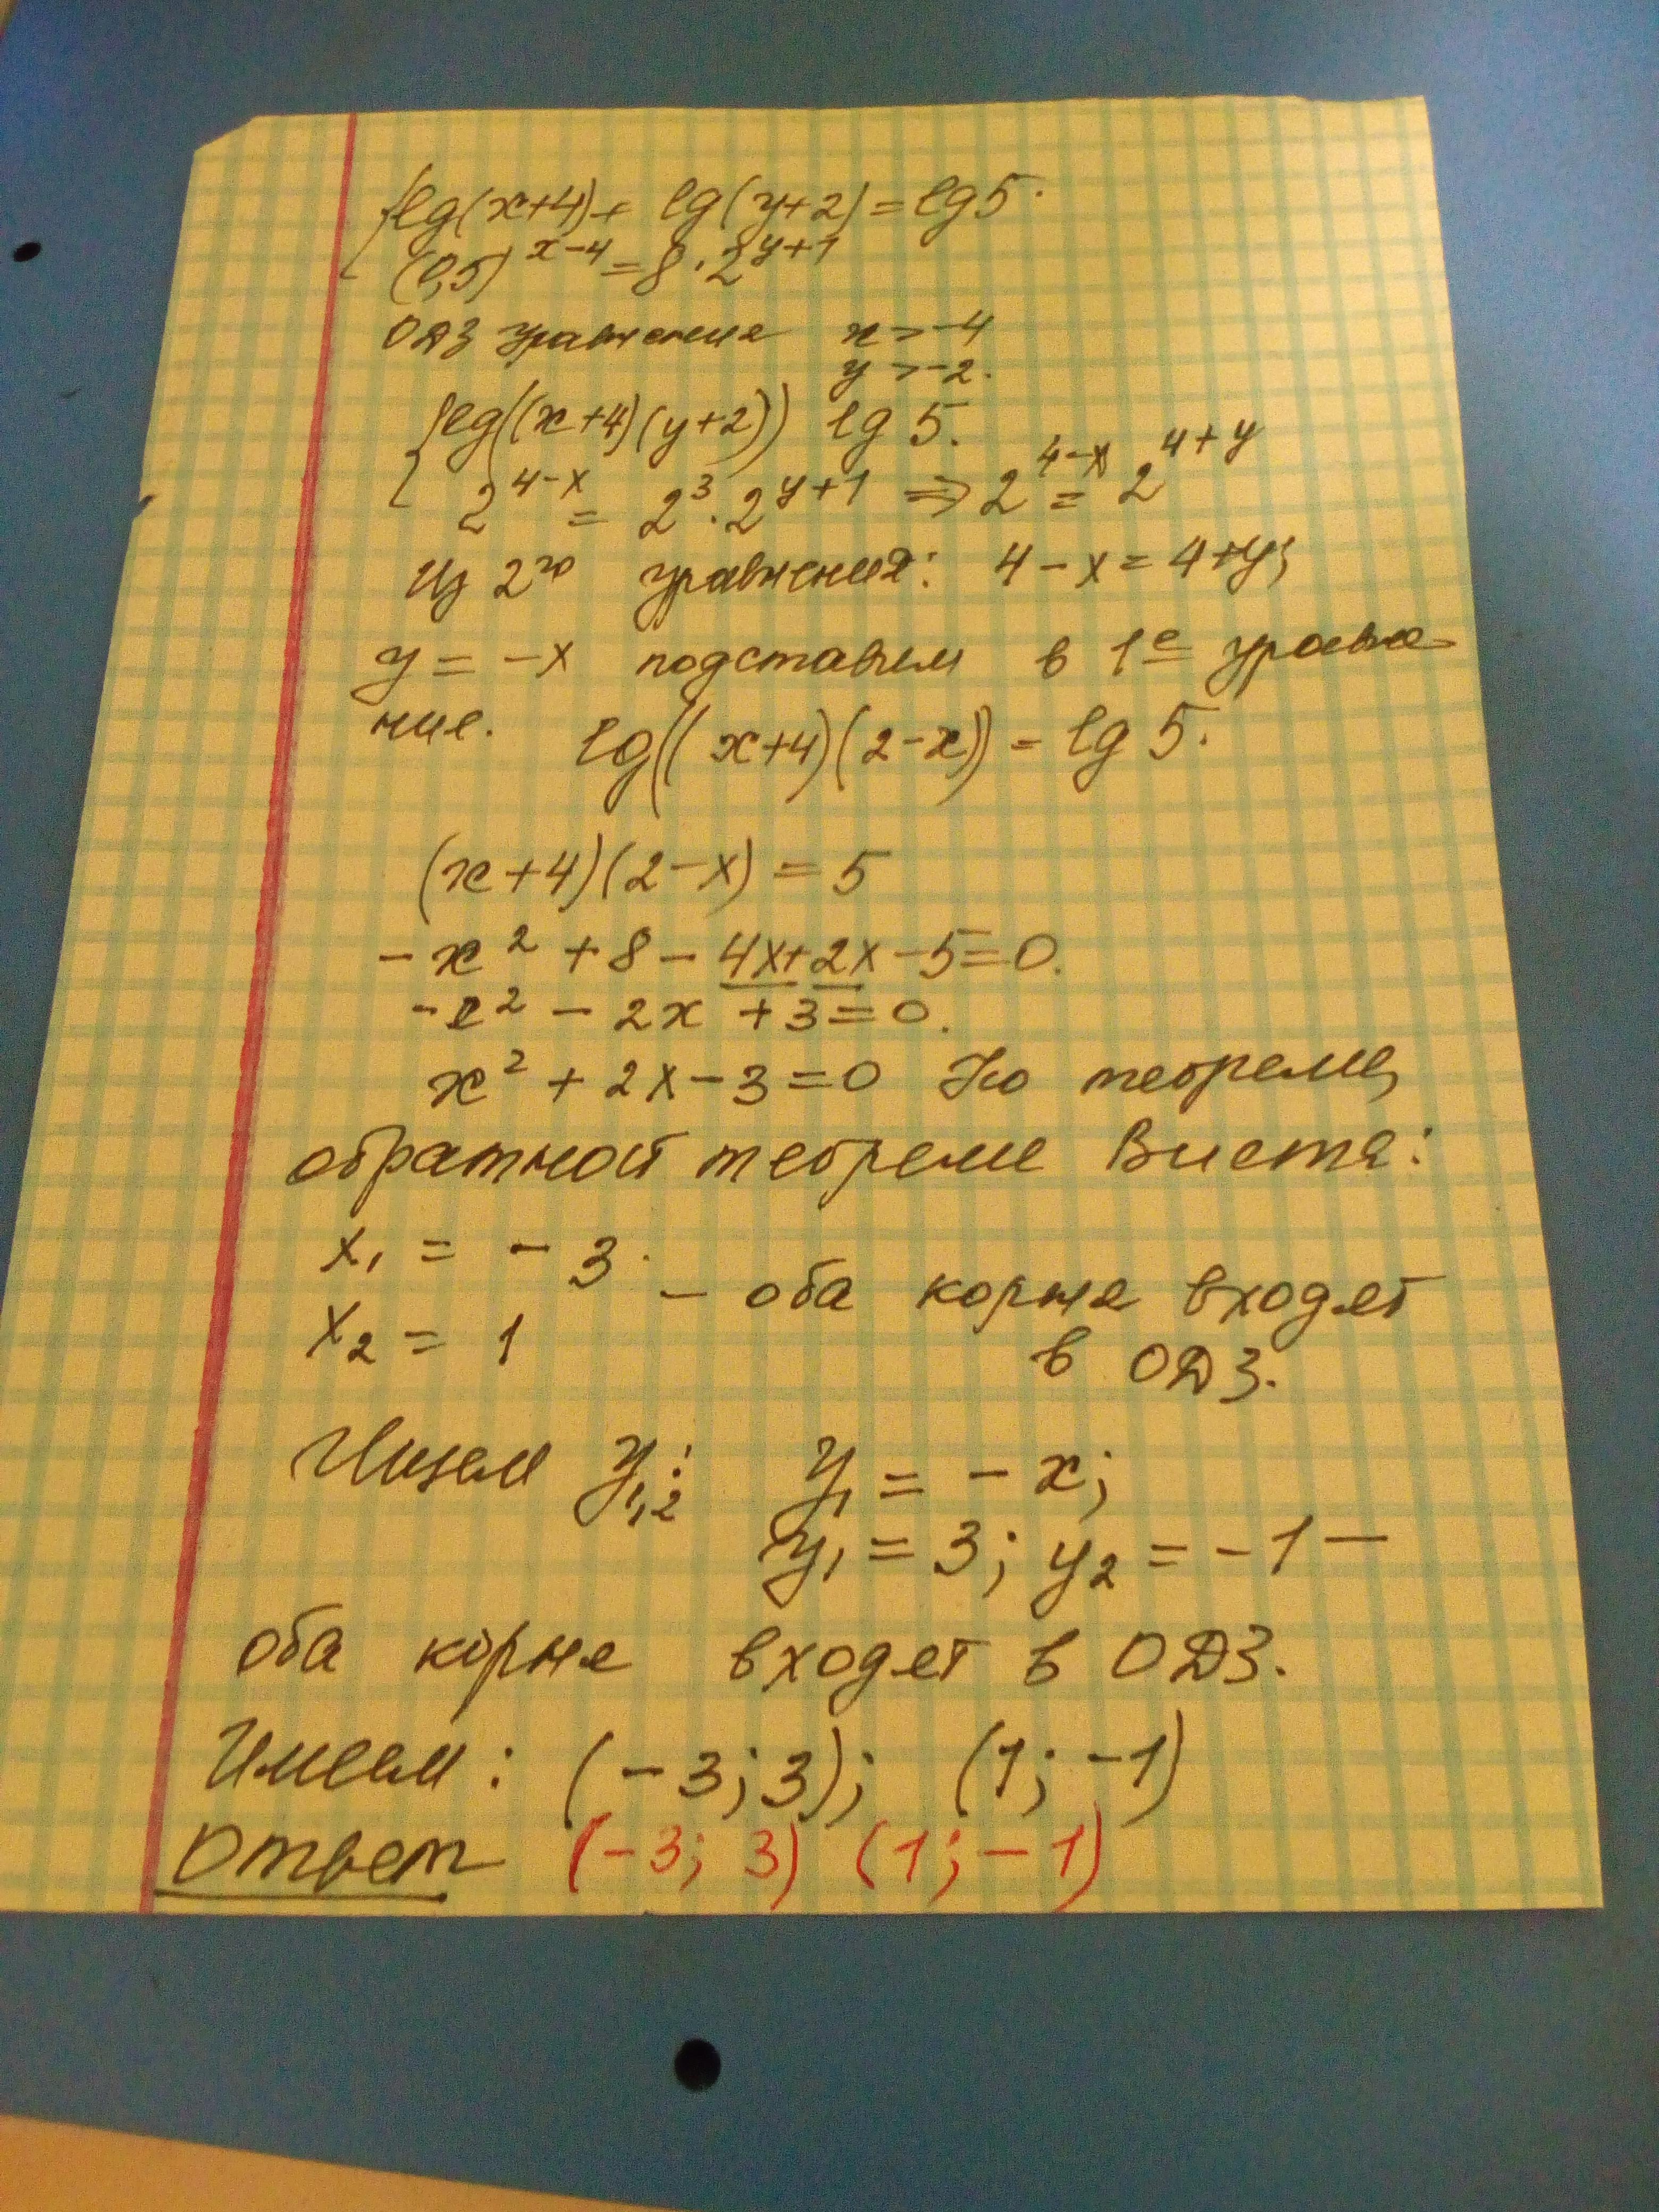 {lg(x+4)+ lg(y+2)=lg5.
(0,5)^{x-4}=8·2^{y+1}
ОДЗ уравнения x>-4
y>-2.
{lg((x+4)(y+2)) lg 5.
2^{4-x} = 2^3·2^{y+1} ⇒ 2^{4-x} = 2^{4+y}
Из 2^{го} уравнения: 4-x=4+y;
y=-x подставим в 1^е уравне-
ние. lg((x+4)(2-x)) = lg 5.
(x+4)(2-x) = 5
-x² + 8 - 4x+2x-5=0.
-x² - 2x + 3=0.
x² + 2x-3=0 По теореме,
обратной теореме Виета:
x₁ = -3.
- оба корня входят
x₂ = 1
в ОДЗ.
Ищем y₁,₂: y₁ = -x;
y₁ = 3; y₂ = -1 —
оба корня входят в ОДЗ.
Имеем: (-3;3); (1;-1)
Ответ (-3; 3) (1;-1)